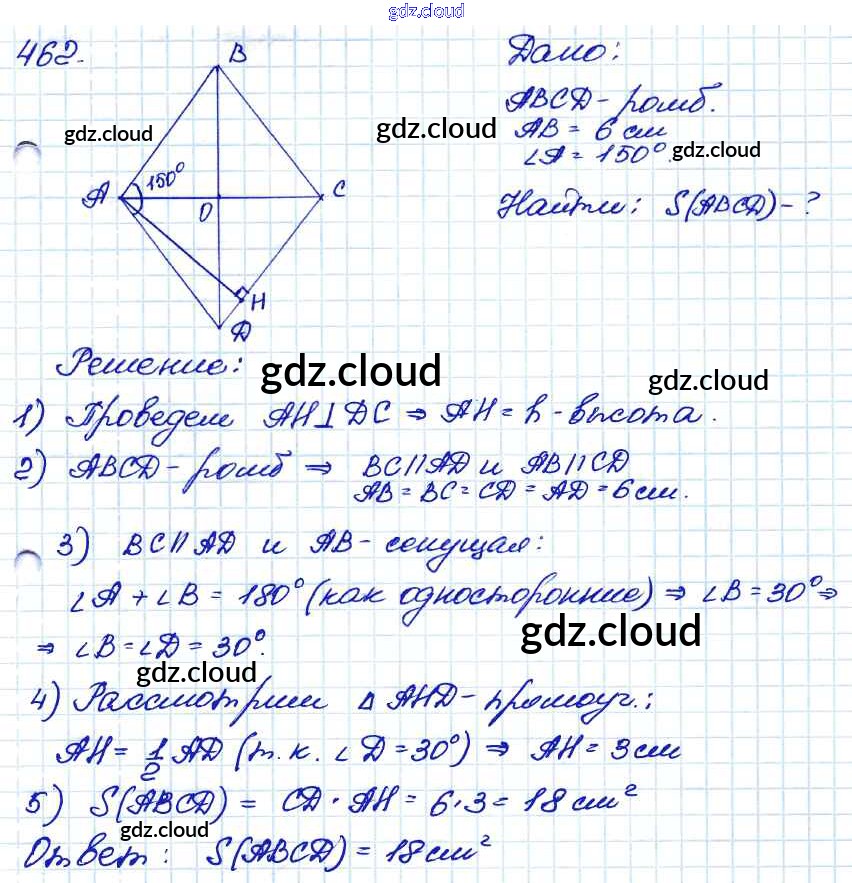 gdz.cloud
462.
B
Дано:
ABCD - ромб.
gdz.cloud
gdz.cloud
AB = 6 см
∠A = 150°.
gdz.cloud
150°
A
O
C
Найти: S(ABCD) - ?
H
D
Решение:
gdz.cloud
gdz.cloud
1) Проведем AH⊥DC ⇒ AH = h - высота.
2) ABCD - ромб ⇒ BC||AD и AB||CD
AB = BC = CD = AD = 6 см.
3) BC||AD и AB - секущая:
∠A + ∠B = 180° (как односторонние) ⇒ ∠B = 30° ⇒
⇒ ∠B = ∠D = 30°.
gdz.cloud
gdz.cloud
4) Рассмотрим △ AHD - прямоуг.:
AH = 1/2 AD (т.к. ∠D = 30°) ⇒ AH = 3 см
gdz.cloud
5) S(ABCD) = CD · AH = 6 · 3 = 18 см²
gdz.cloud
Ответ: S(ABCD) = 18 см²